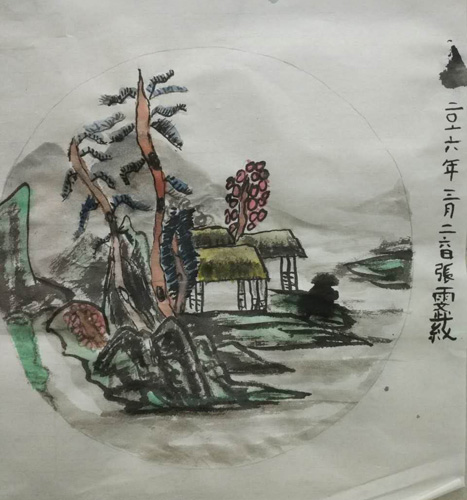 二〇一六年三月二日張